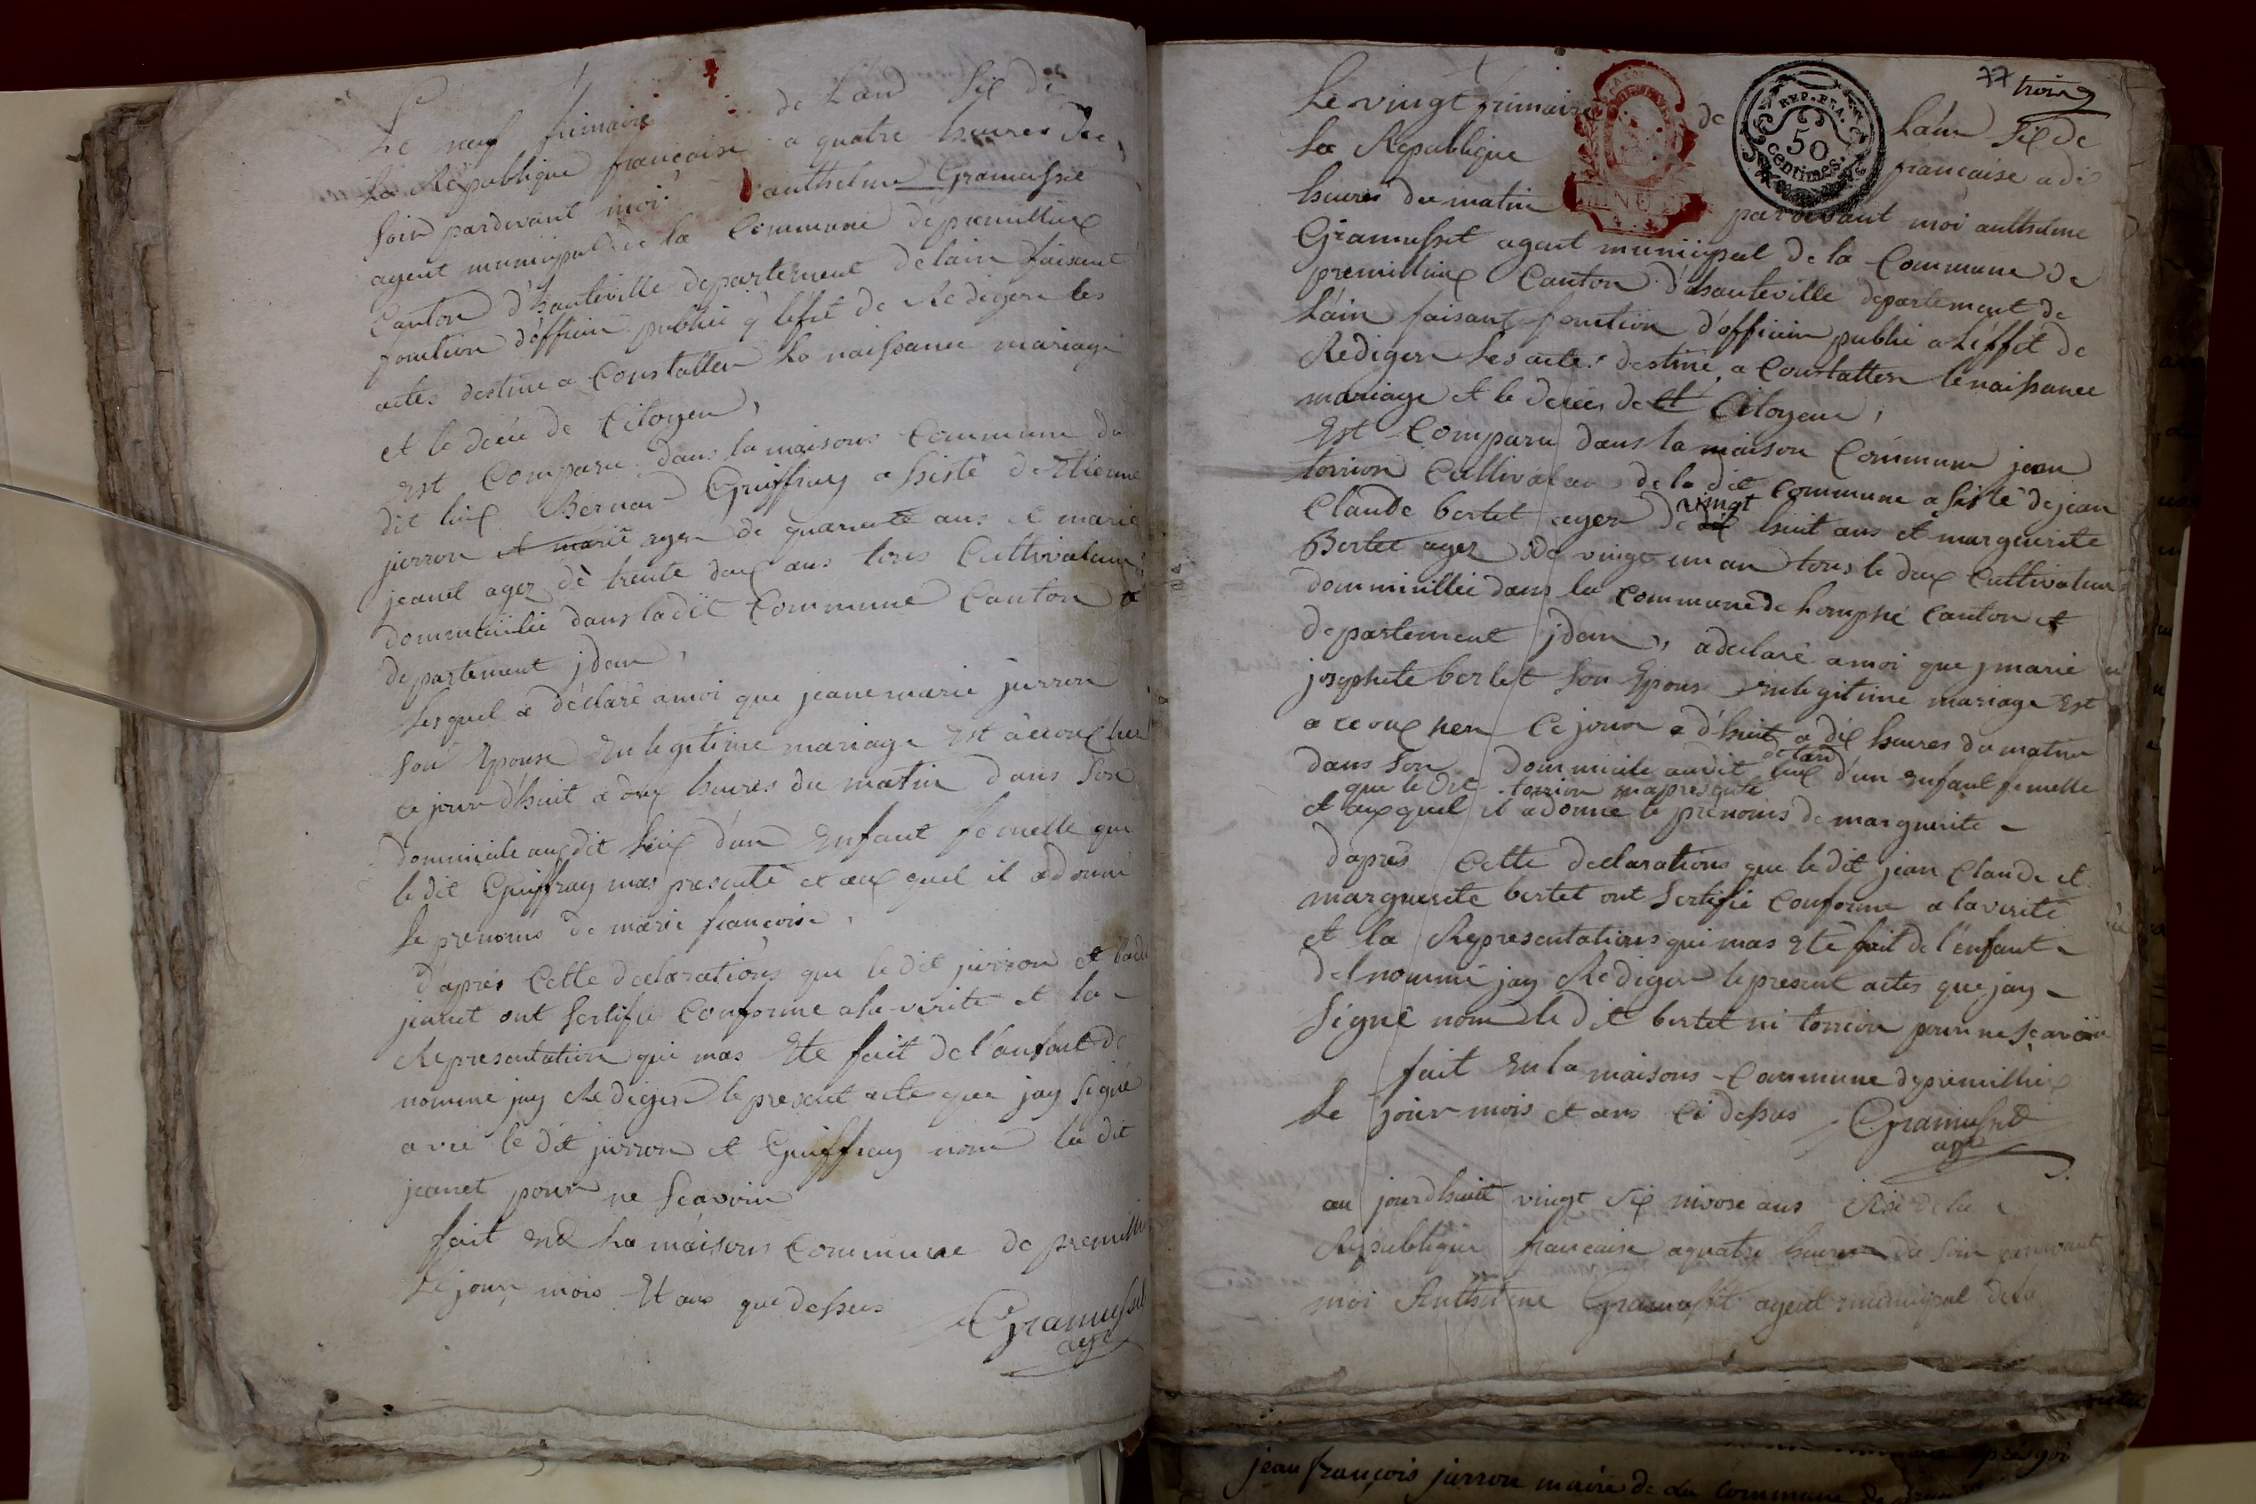 Le neuf frimaire de Land six de
La République francoise a quatre heures du
soir pardevant moi anthelme Gramusset
agent municipal de la Commune de premillieux
Canton d'hauteville departement de lain faisant
fonction d'officier public a l'effit de Rediger les
actes destine a Constatter la naissance mariage
et le décé de Citoyen,
Est Comparu dans la maisons Commune du
dit lieu Bernar Guiffray assisté d'Etienne
jurron et marie agez de quarante ans et marie
jeanet agez de trente deux ans tous Cultivateur
dommicilié dans la dit Commune Canton et
departement jdem,
Lesquel a déclaré a moi que jeane marie jurron
son Epouse En legitime mariage Est accoucher
ce jour d'huit a onze heures du matin dans son
dommicile au dit lieu d'un Enfant femelle que
le dit Guiffray mas presenté et aux quel il a donné
le prenoms de marie francoise,
d'après Cette declarations que le dit jurron et ladit
jeanet ont Sertifie Conforme a la verité et la
Representation qui mas Ete fait de l'anfant de
nommé jay Rediger le present acte que jay signé
avec le dit jurron et Guiffray nom la dit
jeanet pour ne scavoir
fait End La maisons Commune de premillieu
Le jour mois Et ans que dessus Gramusset
agt
77 trois
Le vingt frimaire de Lain six de
La Republique francaise a dix
heures du matin pardevant moi anthelme
Gramusset agent municipal de la Commune de
premillieux Canton d'hauteville departement de
Lain faisant fonction d'officier public a L'éffét de
Rediger Les actes destiné a Constatter le naissance
mariage et le déces de et Citoyen,
Est Comparu dans la maison Commune jean
torrion Cultivateur de la dit Commune assisté de jean
vingt
Claude bertet agez de dix huit ans et marguerite
Bertet agez de vingt un an tous le deux Cultivateur
dommicillié dans la Commune de Canton et
departement jdem, a déclaré a moi que marie
josephete bertet son Epouse En legitime mariage Est
accoucher Ce jour d'huit a dix heures du matin
detan
dans son dommicile au dit lieux d'un Enfant femelle
que le dit torrion ma presente
et auxquel il a donné le prenoms de marguerite
d'après Cette declarations que le dit jean Claude et
marguerite bertet ont Sertifié Conforme a la verité
et la Representations qui mas Eté fait de l'enfant
del nommé jay Rediger le present actes que jay
Signé nom le dit bertet ni torrion pour ne scavoir
fait En la maisons Commune de premillieu
Le jour mois et ans Ci dessus Gramusset
agt
au jourdhuit vingt six nivose ans Six de la
Republique francaise a quatre heures du soir pardevant
moi Anthelme Gramusset agent municipal de la
REP. FRA.
50
Centimes.
jean françois jurron maire de la Commune de